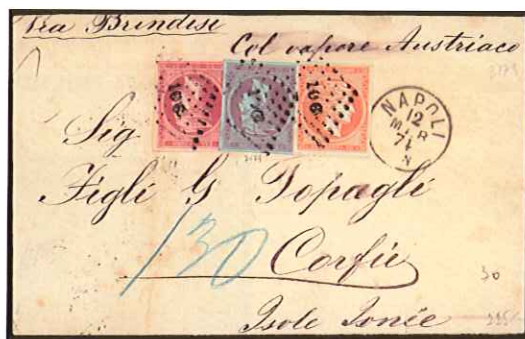 Via Brindisi
Col vapore Austriaco
NAPOLI
12
MAR
71
N
Sig
Figli G Topagli
130
Corfù
Isole Ionie
30